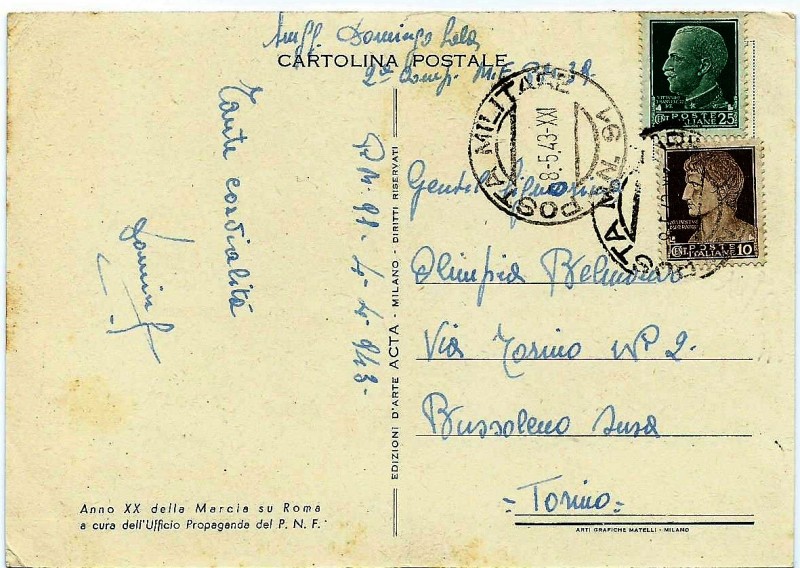 Domingo
CARTOLINA POSTALE
2ª Comp.
Tante cordialità
P.M. 91 - 4-5-943-
EDIZIONI D'ARTE ACTA - MILANO - DIRITTI RISERVATI
POSTA MILITARE N. 91
8-5.43-XXI
POSTE
CENT. ITALIANE 25
POSTE
CENT. ITALIANE 10
POSTA
Olimpia
Via Torino Nº 2.
Bussoleno Susa
= Torino =
Anno XX della Marcia su Roma
a cura dell'Ufficio Propaganda del P. N. F.
ARTI GRAFICHE MATELLI - MILANO